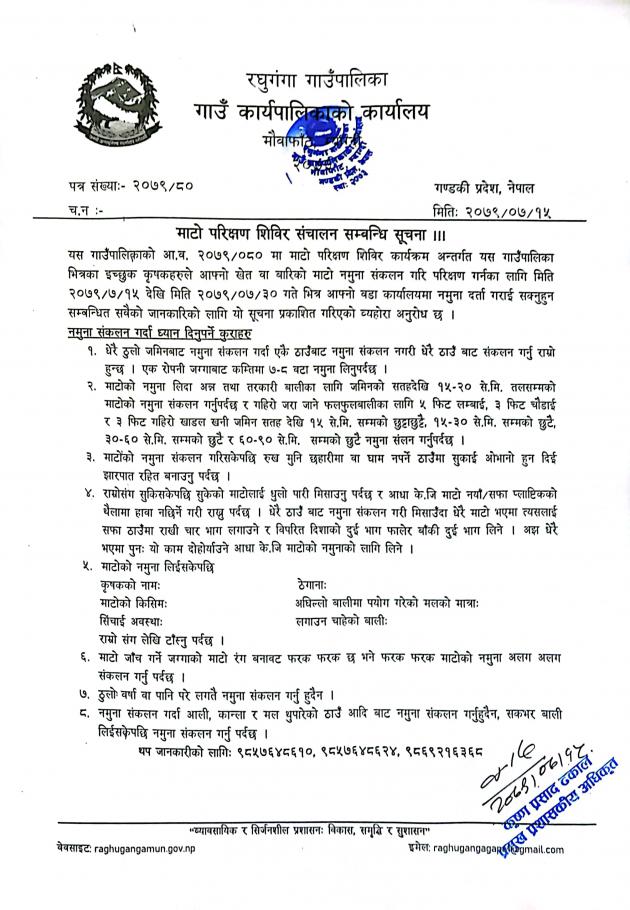 रघुगंगा गाउँपालिका
गाउँ कार्यपालिकाको कार्यालय
मौवाफाँट,
पत्र संख्याः- २०७९/८०
गण्डकी प्रदेश, नेपाल
च.न :-
मितिः २०७९/०७/१५
माटो परिक्षण शिविर संचालन सम्बन्धि सूचना ।।।
यस गाउँपालिकाको आ.व. २०७९/०८० मा माटो परिक्षण शिविर कार्यक्रम अन्तर्गत यस गाउँपालिका
भित्रका इच्छुक कृषकहरुले आफ्नो खेत वा बारिको माटो नमुना संकलन गरि परिक्षण गर्नका लागि मिति
२०७९/७/१५ देखि मिति २०७९/०७/३० गते भित्र आफ्नो वडा कार्यालयमा नमुना दर्ता गराई सक्नुहुन
सम्बन्धित सबैको जानकारिको लागि यो सूचना प्रकाशित गरिएको व्यहोरा अनुरोध छ ।
नमुना संकलन गर्दा ध्यान दिनुपर्ने कुराहरु
१. धेरै ठुलो जमिनबाट नमुना संकलन गर्दा एकै ठाउँबाट नमुना संकलन नगरी धेरै ठाउँ बाट संकलन गर्नु राम्रो
हुन्छ । एक रोपनी जग्गाबाट कम्तिमा ७-८ वटा नमुना लिनुपर्दछ ।
२. माटोको नमुना लिदा अन्न तथा तरकारी बालीका लागि जमिनको सतहदेखि १५-२० से.मि. तलसम्मको
माटोको नमुना संकलन गर्नुपर्दछ र गहिरो जरा जाने फलफुलबालीका लागि ५ फिट लम्बाई, ३ फिट चौडाई
र ३ फिट गहिरो खाडल खनी जमिन सतह देखि १५ से.मि. सम्मको छुट्टाछुट्टै, १५-३० से.मि. सम्मको छुटै,
३०-६० से.मि. सम्मको छुटै र ६०-९० से.मि. सम्मको छुटै नमुना संलन गर्नुपर्दछ ।
३. माटोंको नमुना संकलन गरिसकेपछि रुख मुनि छहारीमा वा घाम नपर्ने ठाउँमा सुकाई ओभानो हुन दिई
झारपात रहित बनाउनु पर्दछ ।
४. राम्रोसंग सुकिसकेपछि सुकेको माटोलाई धुलो पारी मिसाउनु पर्दछ र आधा के.जि माटो नयाँ/सफा प्लाष्टिकको
थैलामा हावा नछिर्ने गरी राख्नु पर्दछ । धेरै ठाउँ बाट नमुना संकलन गरी मिसाउँदा धेरै माटो भएमा त्यसलाई
सफा ठाउँमा राखी चार भाग लगाउने र विपरित दिशाको दुई भाग फालेर बाँकी दुई भाग लिने । अझ धेरै
भएमा पुनः यो काम दोहोर्याउने आधा के.जि माटोको नमुनाको लागि लिने ।
५. माटोको नमुना लिईसकेपछि
कृषकको नामः ठेगानाः
माटोको किसिमः अघिल्लो बालीमा पयोग गरेको मलको मात्राः
सिंचाई अवस्थाः लगाउन चाहेको बालीः
राम्रो संग लेखि टाँस्नु पर्दछ ।
६. माटो जाँच गर्ने जग्गाको माटो रंग बनावट फरक फरक छ भने फरक फरक माटोको नमुना अलग अलग
संकलन गर्नु पर्दछ ।
७. ठुलो वर्षा वा पानि परे लगतै नमुना संकलन गर्नु हुदैन ।
८. नमुना संकलन गर्दा आली, कान्ला र मल थुपारेको ठाउँ आदि बाट नमुना संकलन गर्नुहुदैन, सकभर बाली
लिईसकेपछि नमुना संकलन गर्नु पर्दछ ।
थप जानकारीको लागिः ९८५७६४८६१०, ९८५७६४८६२४, ९८६९२१६३६८
कृष्ण प्रसाद ढकाल
प्रमुख प्रशासकीय अधिकृत
"व्यावसायिक र सिर्जनशील प्रशासनः विकास, समृद्धि र सुशासन"
वेवसाइटः raghugangamun.gov.np
इमेलः